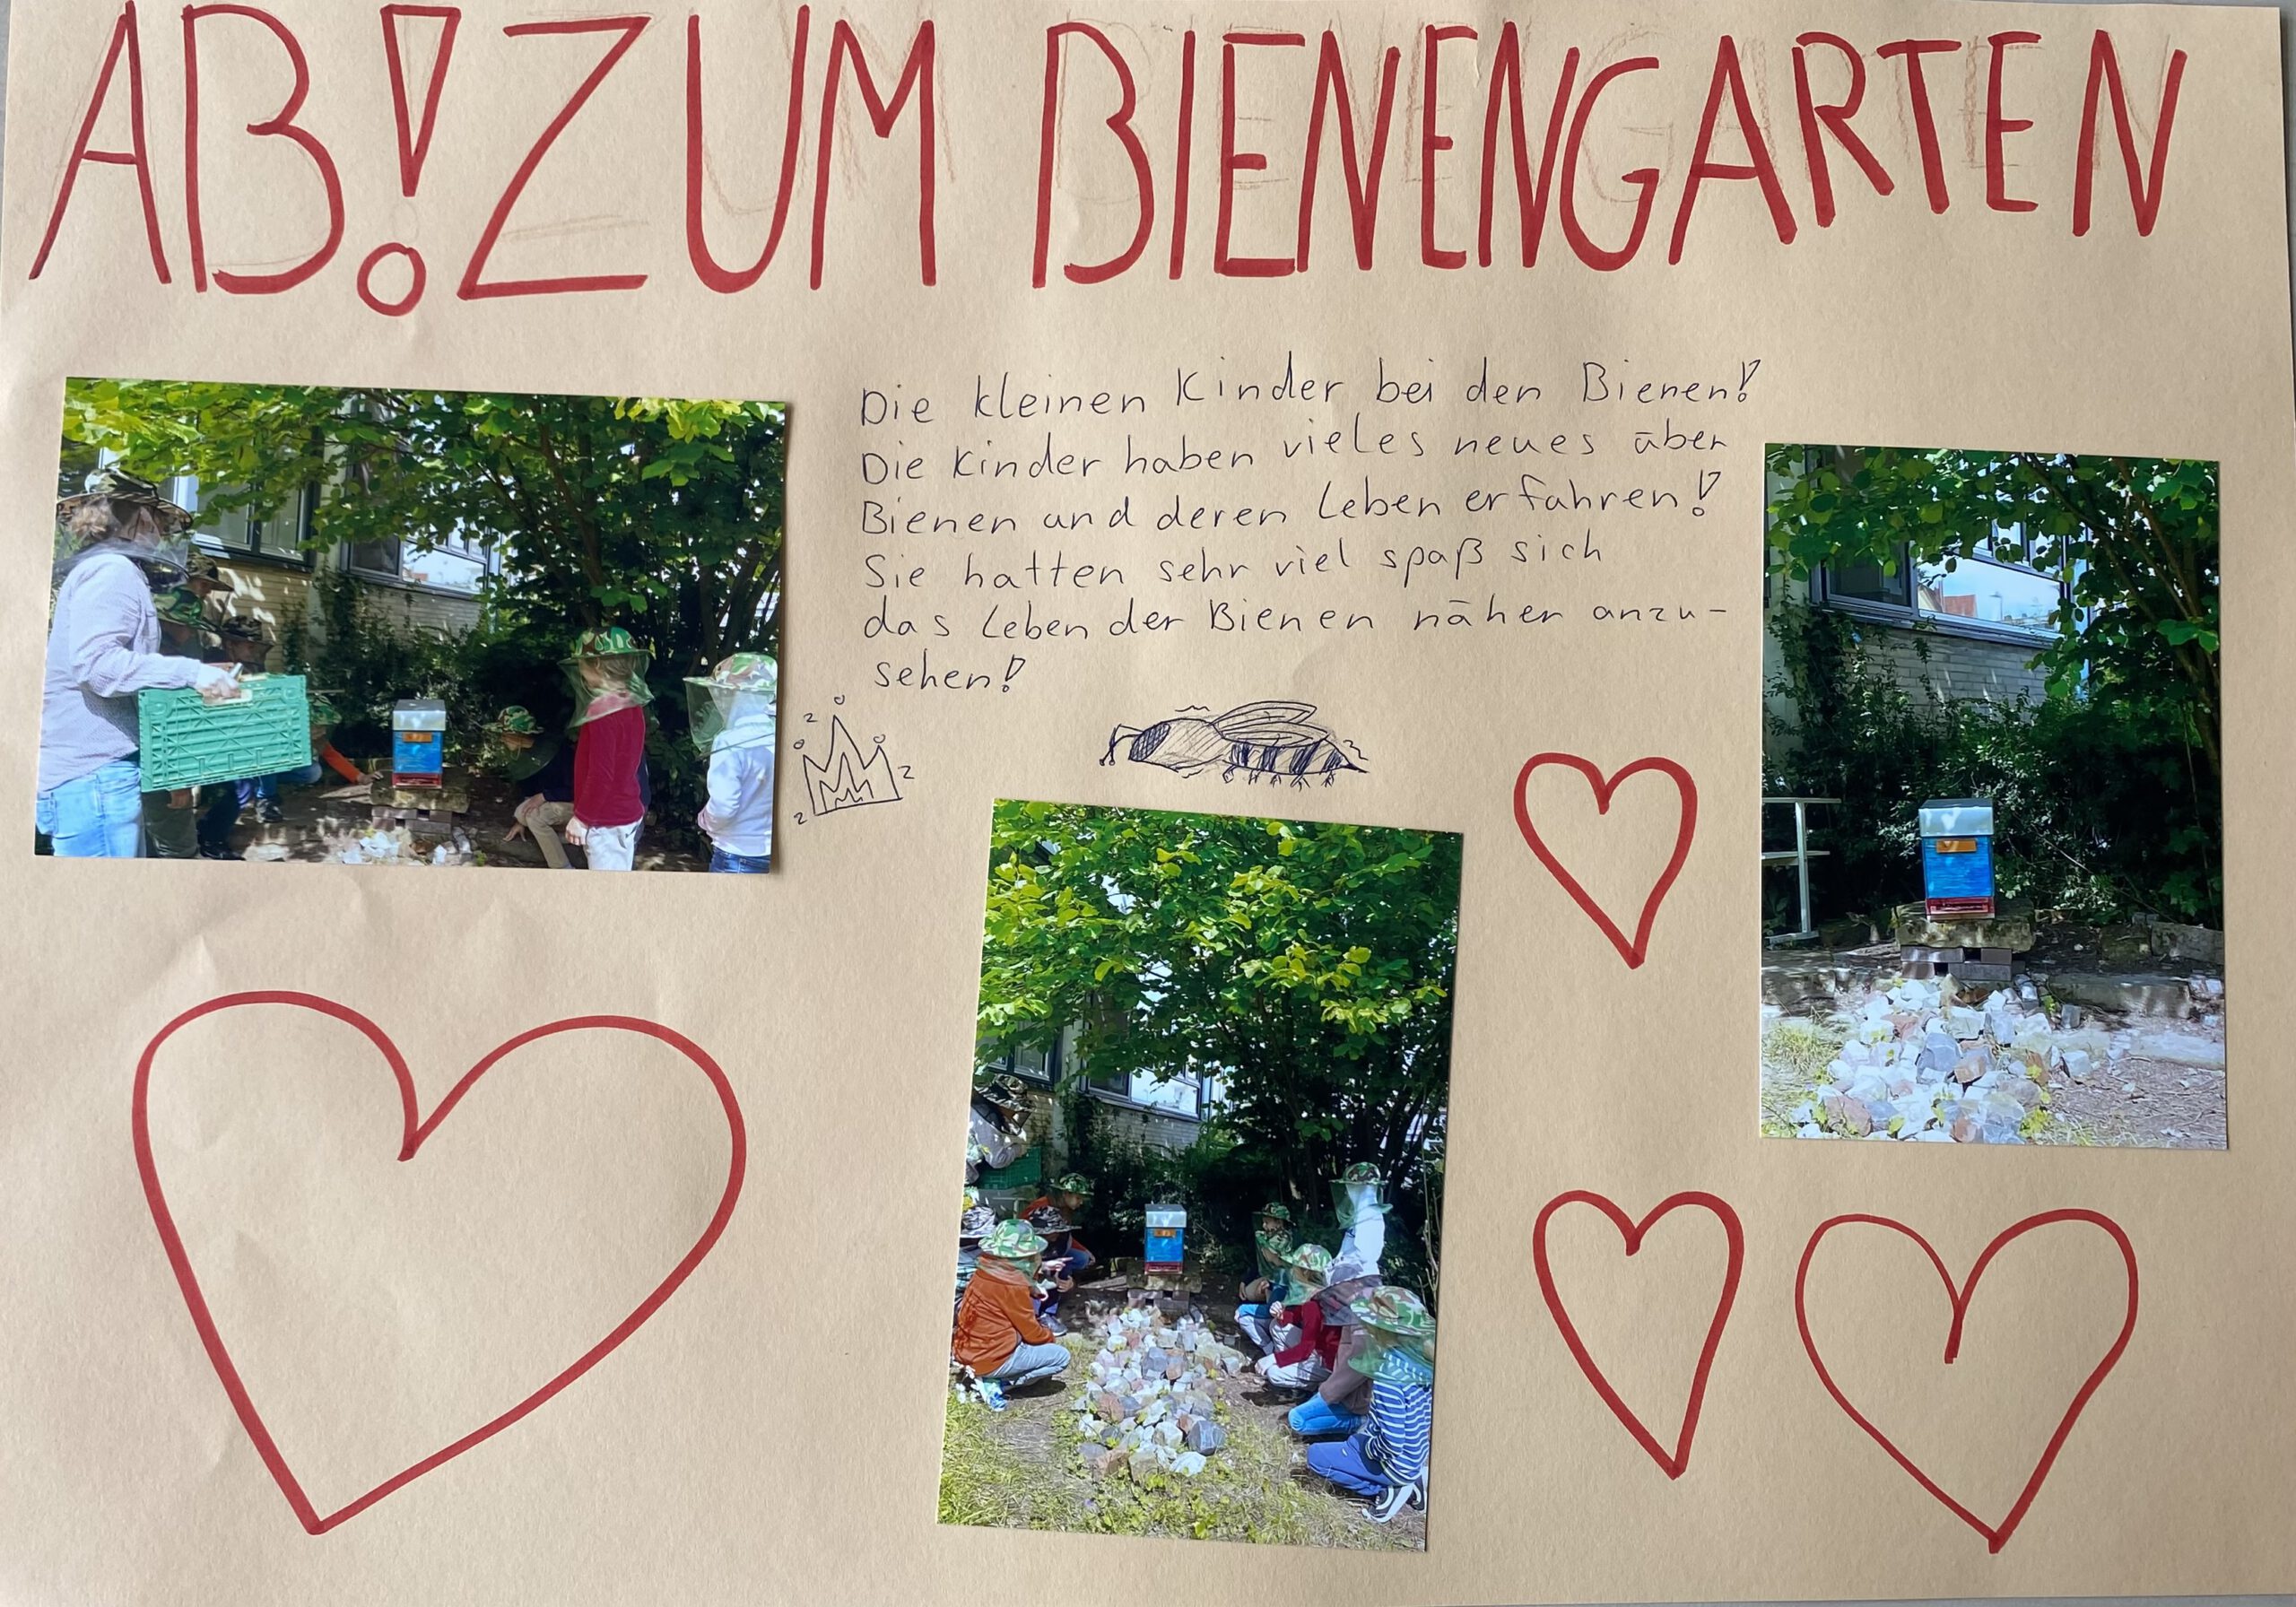 AB! ZUM BIENENGARTEN
Die kleinen Kinder bei den Bienen!
Die Kinder haben vieles neues über
Bienen und deren Leben erfahren!
Sie hatten sehr viel spaß sich
das Leben der Bienen näher anzu-
sehen!